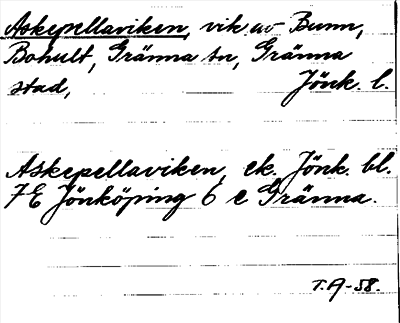 Askepellaviken, vik av Bunn,
Bohult, Gränna sn, Gränna
stad, Jönk. l.
Askepellaviken, ek. Jönk. bl.
7E Jönköping 6 e Gränna.
T.A-58.